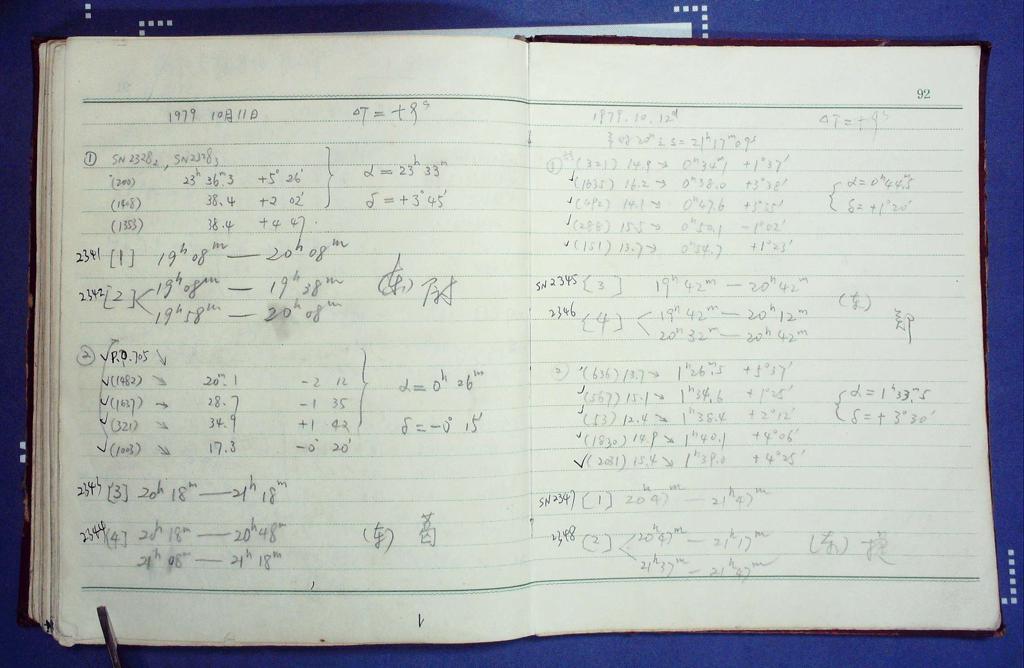 1979 10月11日 ΔT=+9ˢ
① SN2328₂, SN2328₃
(200) 23ʰ 36ᵐ.3 +5° 26′
(1408) 38.4 +2 02′
(1353) 38.4 +4 47
α=23ʰ 33ᵐ
δ=+3°45′
2341 [1] 19ʰ08ᵐ — 20ʰ08ᵐ
2342 [2] 19ʰ08ᵐ — 19ʰ38ᵐ
19ʰ58ᵐ — 20ʰ08ᵐ
(东)
② √P.Q.705 ↘
√(1482) → 20ᵐ.1 -2 12
√(1637) → 28.7 -1 35
√(321) → 34.9 +1 42
√(1003) ↘ 17.3 -0° 20′
α=0ʰ 26ᵐ
δ=-0° 15′
[3] 20ʰ18ᵐ — 21ʰ18ᵐ
2344 [4] 20ʰ18ᵐ — 20ʰ48ᵐ
21ʰ08ᵐ — 21ʰ18ᵐ
(东) 葛
92
1979.10.12ᵈ ΔT=+9ˢ
20ᵐ S=21ʰ17ᵐ09ˢ
① (321) 14.9→ 0ʰ34ᵐ.9 +1°37′
√(1635) 16.2→ 0ʰ38.0 +3°38′
√(492) 14.1→ 0ʰ47.6 +3°25′
√(288) 15.5→ 0ʰ50.1 -1°02′
√(151) 13.7→ 0ʰ54.7 +1°23′
α=0ʰ44ᵐ.5
δ=+1°20′
SN2345 [3] 19ʰ42ᵐ — 20ʰ42ᵐ
2346 [4] 19ʰ42ᵐ — 20ʰ12ᵐ
20ʰ32ᵐ — 20ʰ42ᵐ
(东) 郑
② √(636) 13.7→ 1ʰ26ᵐ.5 +5°37′
√(567) 15.1→ 1ʰ34.6 +1°25′
√(53) 12.4→ 1ʰ38.4 +2°12′
√(1830) 14.9↘ 1ʰ40.1 +4°06′
√(2081) 15.4↘ 1ʰ39.0 +4°25′
α=1ʰ33ᵐ.5
δ=+3°30′
SN2347 [1] 20ʰ47ᵐ — 21ʰ47ᵐ
2348 [2] 20ʰ47ᵐ — 21ʰ17ᵐ
21ʰ37ᵐ — 21ʰ47ᵐ
(东)